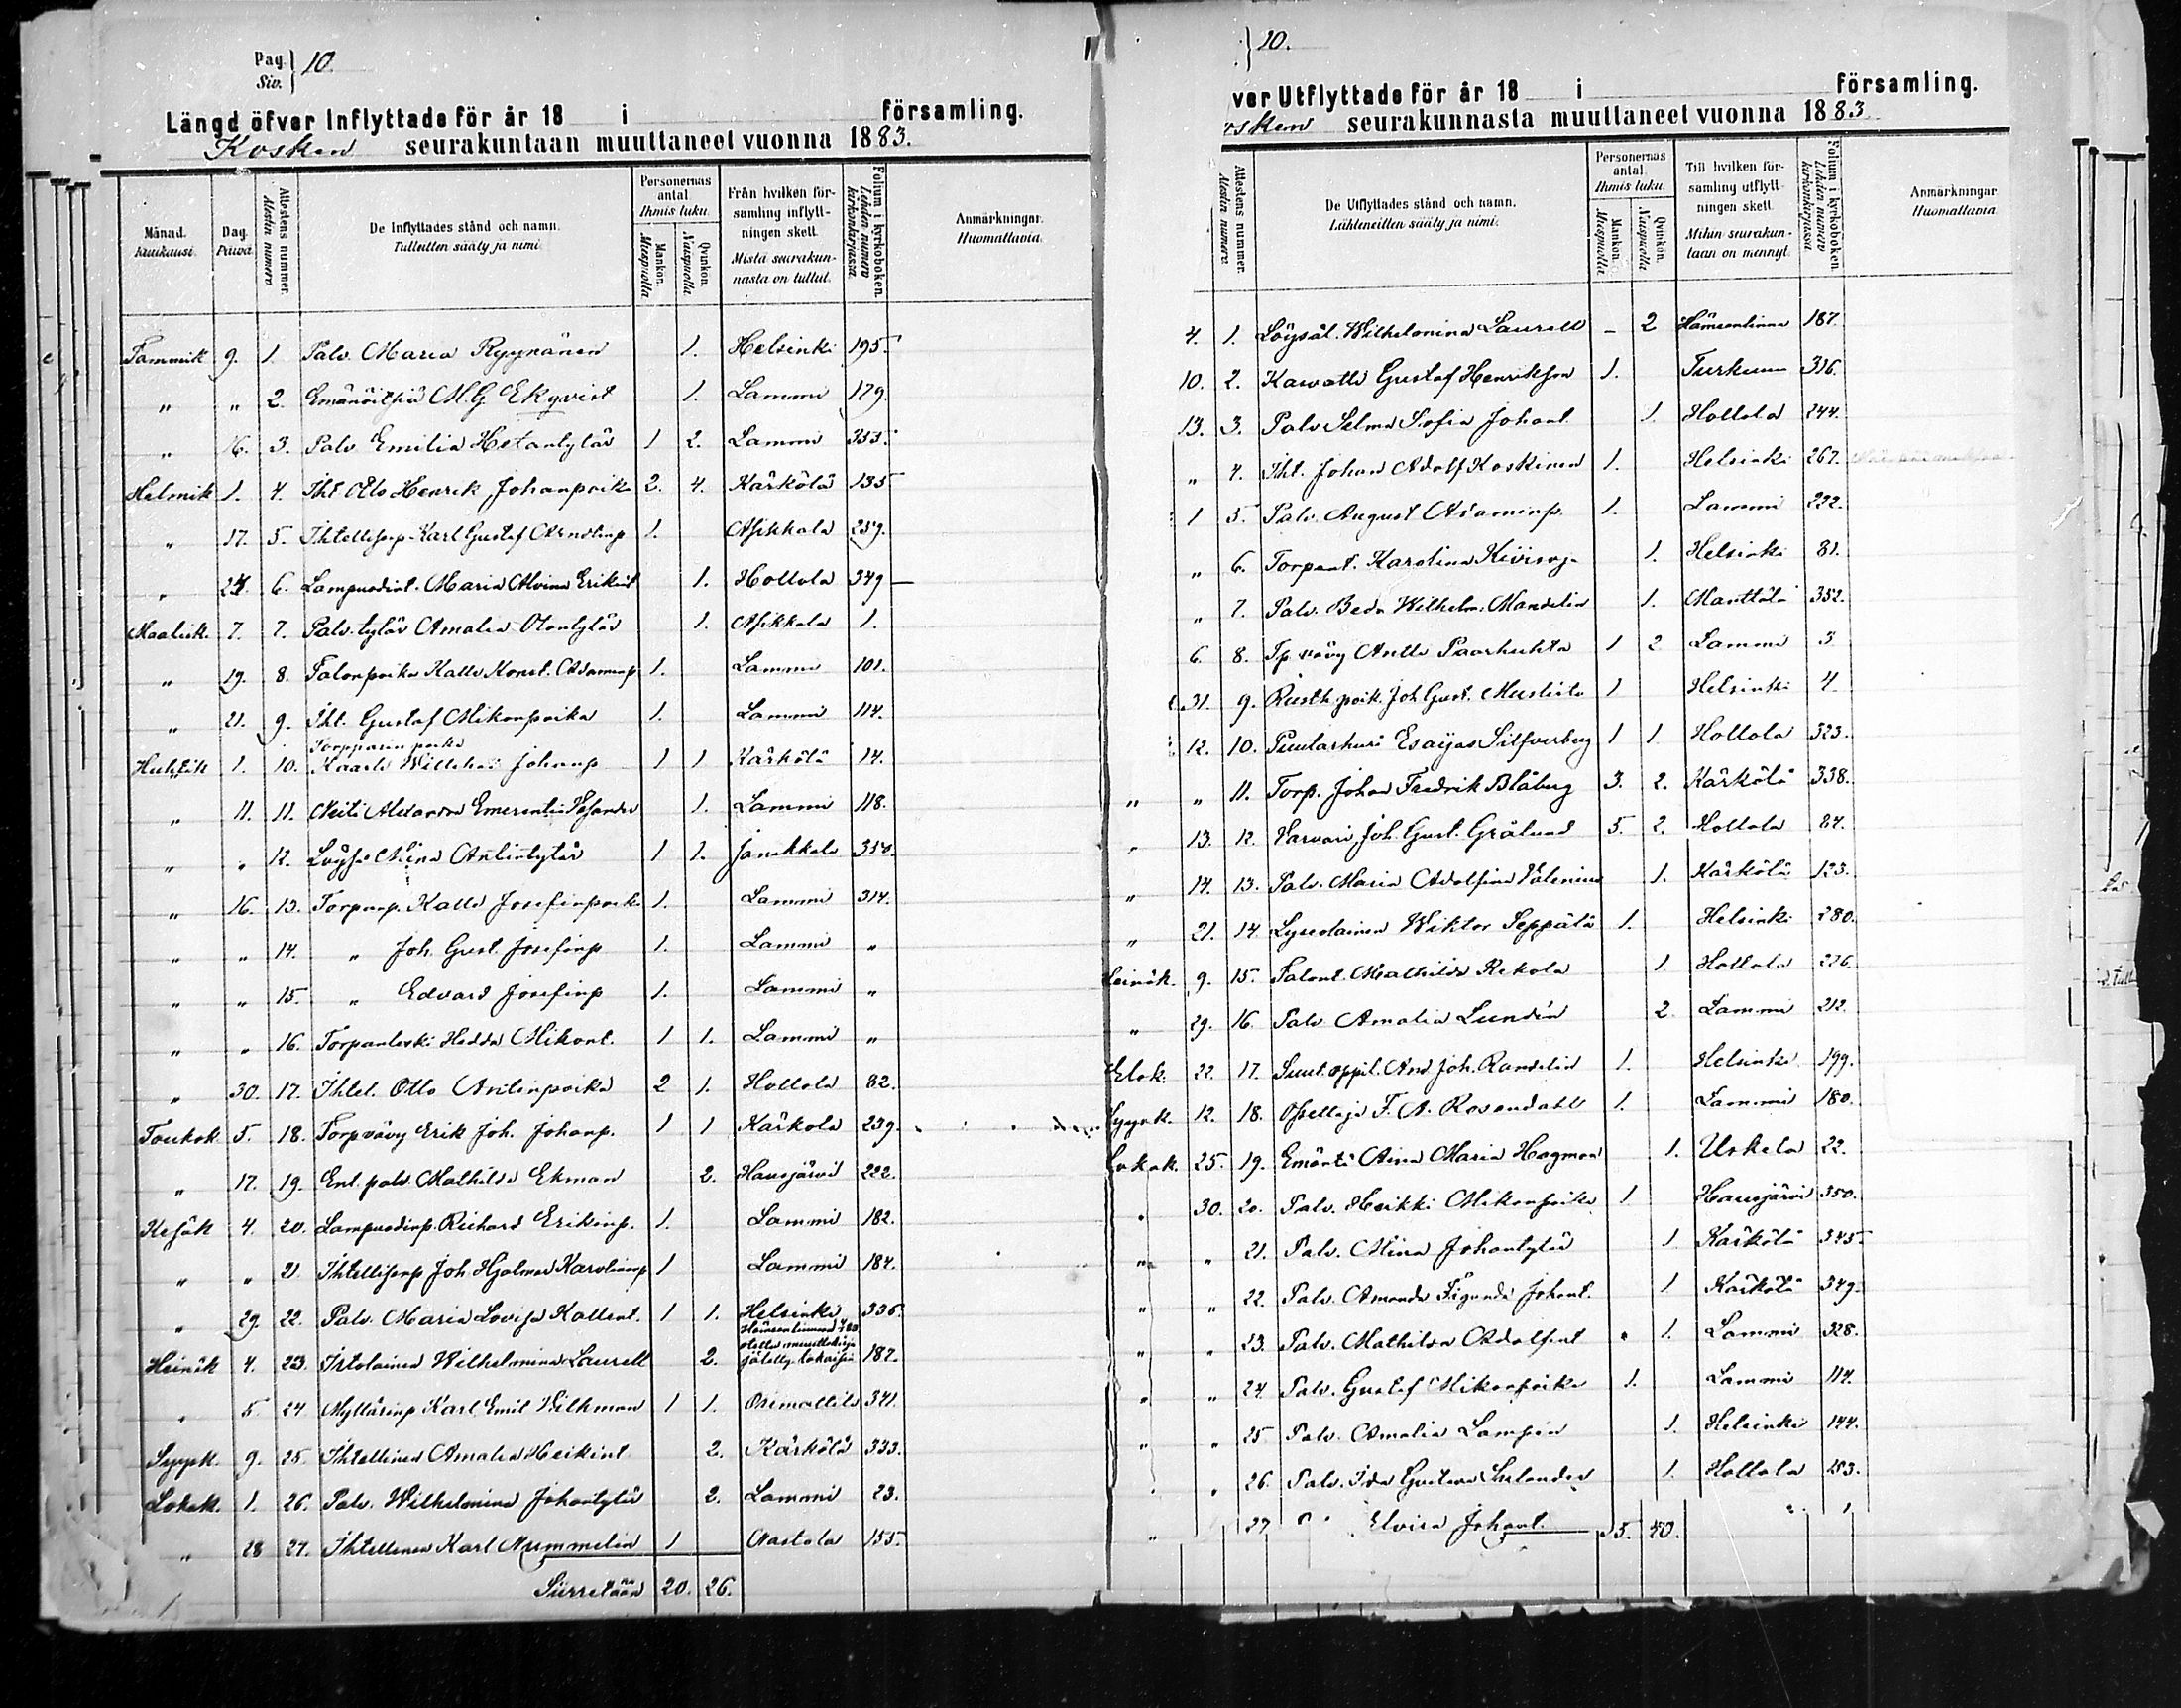 Pag. } 10.
Siv.
Längd öfver Inflyttade för år 18 i församling.
Kosken seurakuntaan muuttaneet vuonna 1883.
Månad. Kuukausi. Dag. Päivä. Attestens nummer. Atestin numero De Inflyttades stånd och namn. Tulleitten sääty ja nimi. Personernas antal. Ihmis luku. Mankön. Miespuolia Qvinkön. Naispuolia Från hvilken församling inflyttningen skett. Mistä seurakunnasta on tullut. Folium i kyrkoboken. Lehden numero kirkonkirjassa. Anmärkningar. Huomattavia.
Tammik 9. 1. Palv. Maria Ryynänen 1. Helsinki 195.
" " 2. Emännöitsiä M. G. Ekqvist 1. Lammi 179.
" 16. 3. Palv Emilia Hetantytär 1 2. Lammi 333.
Helmik 1. 4. Iht Otto Henrik Johanpoika 2. 4. Kärkölä 135
" 17. 5. Ihtellisenp. Karl Gustaf Arndtinp 1. Asikkala 259.
" 24. 6. Lampuodint. Maria Alvina Erikint 1. Hollola 349
Maalisk. 7. 7. Palv. tytär Amalia Otontytär 1. Asikkala 1.
" 19. 8. Talonpoika Kalle Konst. Adaminp 1. Lammi 101.
" 21. 9. Iht. Gustaf Mikonpoika 1. Lammi 114.
Torpparin poika
Huhtik 1. 10. Kaarle Willehad Johanp 1 1 Kärkölä 14.
" 11. 11. Neiti Alexandra Emerentia 1. Lammi 118.
" " 12. Löysä Mina Antintytär 1 1. Janakkala 350.
" 16. 13. Torpanp. Kalle Josefinpoik 1. Lammi 314.
" " 14. " Joh. Gust. Josefinp 1. Lammi "
" " 15. " Edvard Josefinp 1. Lammi "
" " 16. Torpanleski Hedda Mikont. 1 1. Lammi "
" 30. 17. Ihtel. Otto Antinpoika 2 1. Hollola 82.
Toukok 5. 18. Torpvävy Erik Joh. Johanp. 1 1 Kärkola 239.
" 17. 19. Ent. palv. Mathilda Ekman 2. Hausjärvi 222.
Kesäk 4. 20. Lampuodinp. Richard Erikinp. 1. Lammi 182.
" " 21 Ihtellisenp Joh Hjalmar Karolinanp 1 Lammi 184.
" 29. 22. Palv. Maria Lovisa Kallent. 1 1. Helsinki 336.
Hämeenlinnasta
Heinäk 4. 23. Irtolainen Wilhelmina Laurell 2. 187.
" 5. 24 Myllärinp Karl Emil Wilkman 1 1. Orimattila 341.
Syysk. 9. 25. Ihtellinen Amalia Heikint 2. Kärkölä 333.
Lokak. 1. 26. Palv. Wilhelmina Johantytär 2. Lammi 23.
" 28 27. Ihtellinen Karl Nummelin 1 Nastola 155.
Siirretään 20. 26.
} 10.
ver Utflyttade för år 18 i församling.
osken seurakunnasta muuttaneet vuonna 1883
Attestens nummer. Atestin numero De Utflyttades stånd och namn. Lähteneitten sääty ja nimi. Personernas antal. Ihmis luku. Mankön. Miespuolia Qvinkön. Naispuolia Till hvilken församling utflyttningen skett. Mihin seurakuntaan on mennyt. Folium i kyrkoboken. Lehden numero kirkonkirjassa. Anmärkningar Huomattavia
4. 1. Löysäl. Wilhelmina Laurell - 2 Hämeenlinna 187.
10. 2. Kasvatti Gustaf Henriksson 1. Turkuun 316.
13. 3. Palv Selma Sofia Johant 1. Hollola 244.
" 4. Iht. Johan Adolf Koskinen 1. Helsinki 267.
1 5. Palv. August Adaminp. 1. Lammi 222.
" 6. Torpant. Karolina Kivisoja 1. Helsinki 81.
" 7. Palv. Beda Wilhelm. Mandelin 1. Mänttälä 352.
6. 8. Tp vävy Antti Paarhuhta 1 2 Lammi 5
31. 9. Rusth. poik. Joh Gust. 1 Helsinki 4
12. 10. Puutarhuri Esaijas Silfverberg 1 1 Hollola 323.
" " 11. Torp. Johan Fredrik Blåberg 3. 2. Kärkölä 338.
" 13. 12. Värvari Joh. Gust. Grålund 5. 2. Hollola 84.
" 14. 13. Palv. Maria Adolfina Valenius 1. Kärkölä 123.
" 21. 14 Lyseolainen Wiktor Seppälä 1. Helsinki 280.
Heinäk. 9. 15. Talont. Mathilda Rekola 1. Hollola 226.
" 29. 16. Palv Amalia Lundén 2 Lammi 212.
Elok. 22 17. Suut. oppil. And. Joh. Randelin 1. Helsinki 199.
Syysk. 12. 18. Opettaja F. A. Rosendahl 1. Lammi 180.
Lokak. 25. 19. Emäntä Aina Maria Hagman 1. Uskela 22.
" 30. 20. Palv. Heikki Mikonpoika 1 Hausjärvi 350.
" " 21. Palv. Mina Johantytär 1 Kärkölä 345.
" " 22. Palv. Amanda Johant. 1 Kärkölä 349.
" " 23. Palv. Mathilda Adolfint 1. Lammi 328.
" " 24 Palv. Gustaf Mikonpoika 1. Lammi 114.
" " 25 Palv. Amalia Lampén 1. Helsinki 144.
" " 26. Palv. Ida Gustava 1. Hollola 153.
" 27 " Elvira Johant. 40.